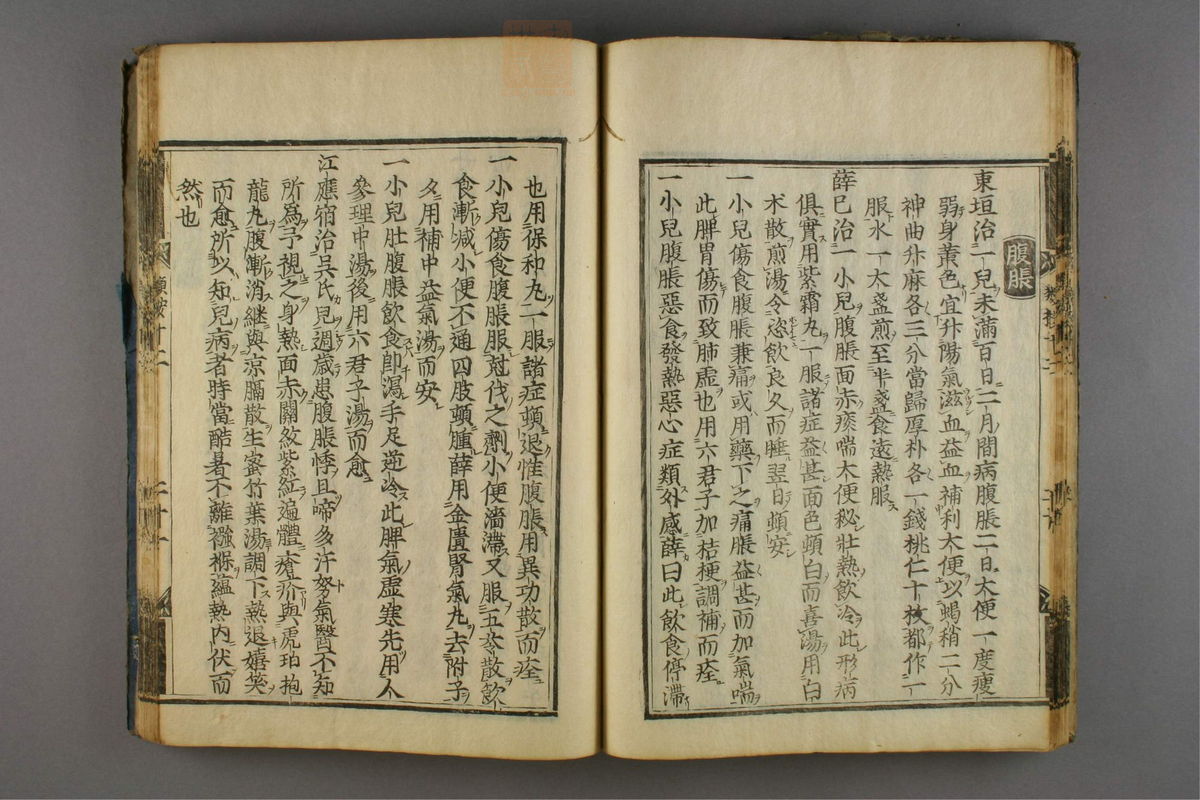 腹脹
東垣治一兒未滿百日二月間病腹脹二日大便一度瘦
弱身黃色宜升陽氣滋血益血補利大便以蝎稍二分
神曲升麻各三分當歸厚朴各一錢桃仁十枚都作一
服水一大盞煎至半盞食遠熱服
薛已治一小兒腹脹面赤痰喘大便秘壯熱飲冷此形病
俱實用紫霜丸一服諸症益甚面色頓白而喜湯用白
术散煎湯令恣飲良久而睡翌日頓安
一小兒傷食腹脹兼痛或用藥下之痛脹益甚而加氣喘
此脾胃傷而致肺虛也用六君子加桔梗調補而痊
一小兒腹脹惡食發熱惡心症類外感薛曰此飲食停滯
也用保和丸一服諸症頓退惟腹脹用異功散而痊
一小兒傷食腹脹服尅伐之劑小便濇滯又服五苓散飲
食漸減小便不通四肢頓腫薛用金匱腎氣丸去附子
夕用補中益氣湯而安
一小兒肚腹脹飲食卽瀉手足逆冷此脾氣虛寒先用人
參理中湯後用六君子湯而愈
江應宿治吳氏兒週歲患腹脹悸且啼多汗努氣醫不知
所爲予視之身熱面赤關紋紫紅遍體瘡疥與虎珀抱
龍丸腹漸消繼與涼膈散生蜜竹葉湯調下熱退嬉笑
而愈所以知兒病者時當酷暑不離襁褓蘊熱內伏而
然也
類按十二